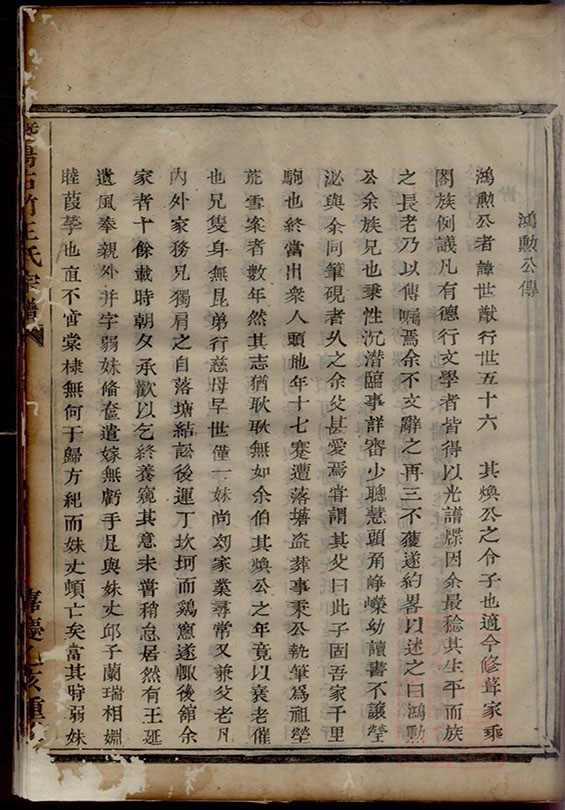 鴻勲公傳
鴻勲公者諱世猷行世五十六 其煥公之令子也適今修葺家乘
閤族例議凡有德行文學者皆得以光譜牒因余最稔其生平而族
之長老乃以傳嘱焉余不文辭之再三不獲遂約畧以述之曰鴻勲
公余族兄也秉性沉潜臨事詳審少聰慧頭角崢嶸幼讀書不讓瑩
泌與余同筆硯者乆之余父甚愛焉嘗謂其父曰此子固吾家千里
駒也終當出衆人頭地年十七蹇遭落塘盗葬事秉公執筆為祖塋
荒雪案者數年然其志猶耿耿無如余伯其煥公之年竟以衰老催
也兄隻身無昆弟行慈母早世僅一妹尚㓜家業尋常又兼父老凡
内外家務兄獨肩之自落塘結訟後運丁坎坷而鷄窻遂輙後舘余
家者十餘載時朝夕承歡以乞終養窺其意未嘗稍怠居然有王延
遺風奉親外并字弱妹俻奩遣嫁無虧手足與妹丈邱子蘭瑞相婣
睦葭莩也直不啻棠棣無何于歸方紀而妹丈頓亡矣當其時弱妹
陽石前王氏宗譜
嘉慶乙亥重